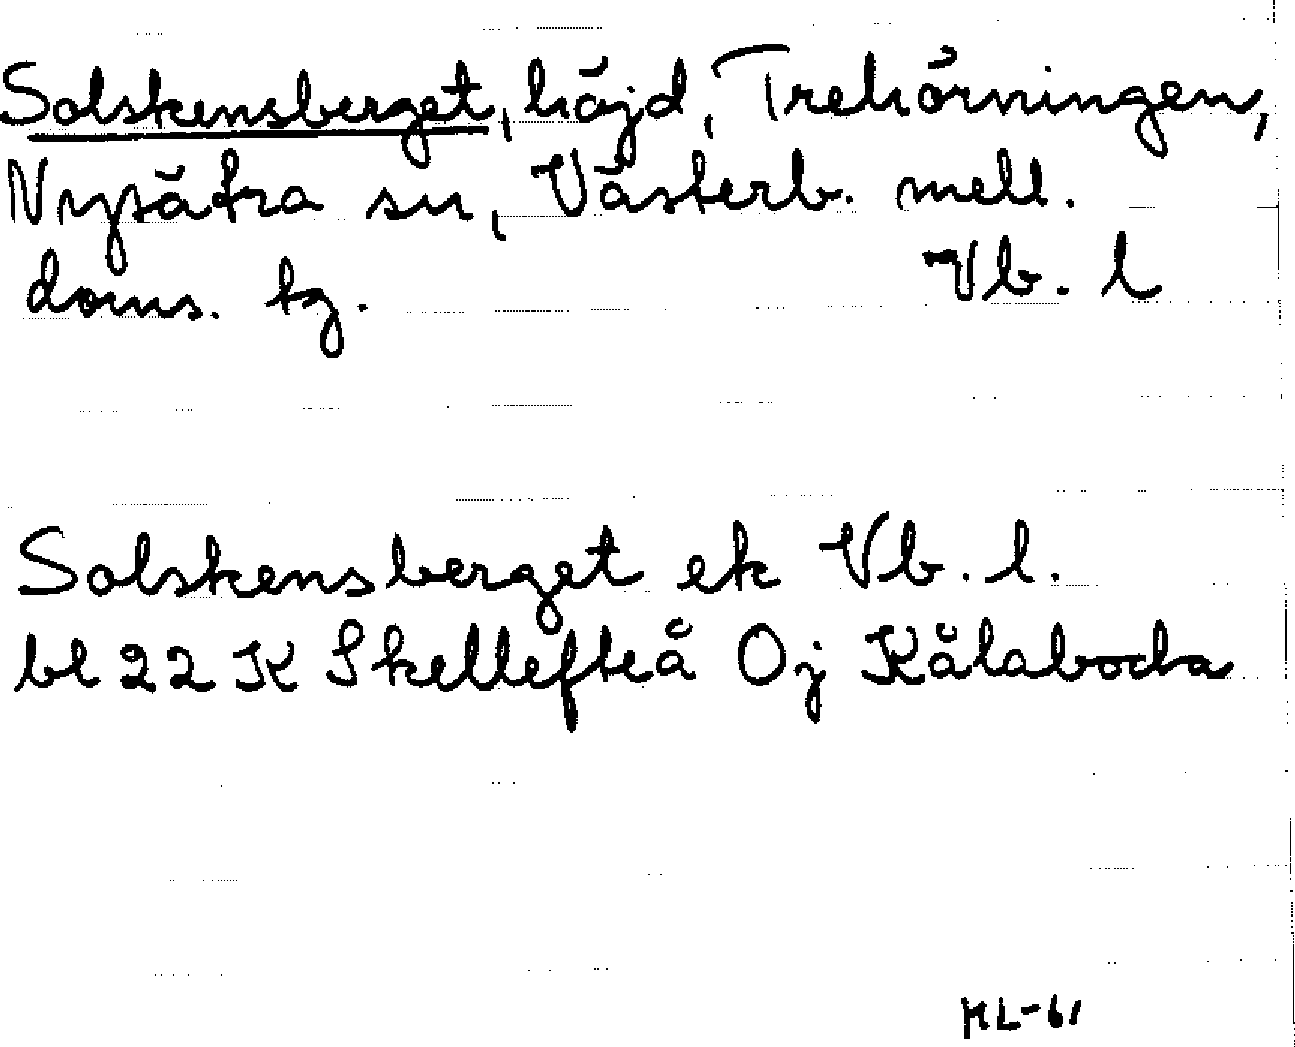 Solskensberget, höjd, Trehörningen,
Nysätra sn, Västerb. mell.
doms. tg. Vb. l
Solskensberget ek Vb. l.
bl 22 K Skellefteå Oj Kålaboda
ML-61